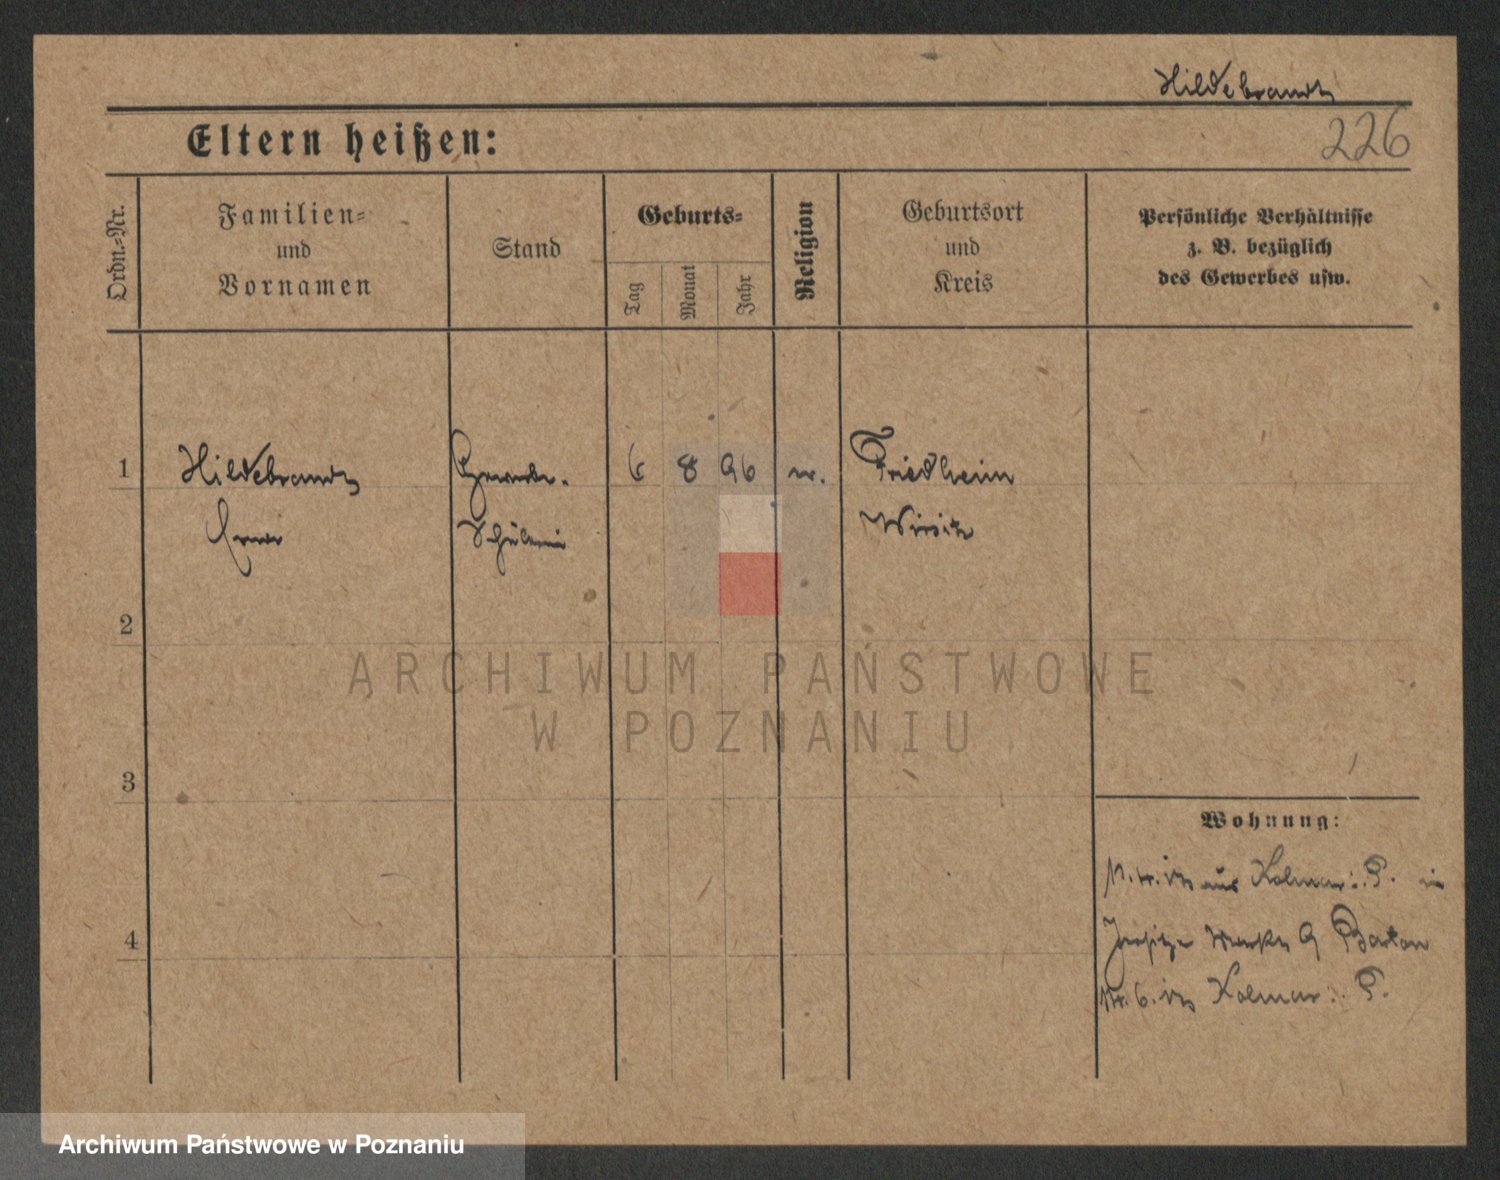 Hildebrandt
226
Eltern heißen:
Ordn.=Nr.
Familien=
und
Vornamen
Stand
Geburts=
Tag
Monat
Jahr
Religion
Geburtsort
und
Kreis
Persönliche Verhältnisse
z. B. bezüglich
des Gewerbes usw.
1 Hildebrandt Gewerbe- 6 8 96 Friedheim
Schülerin Wirsitz
2
3
4
Wohnung:
aus Kolmar i. P. in
9
Kolmar i. P.
ARCHIWUM PAŃSTWOWE
W POZNANIU
Archiwum Państwowe w Poznaniu